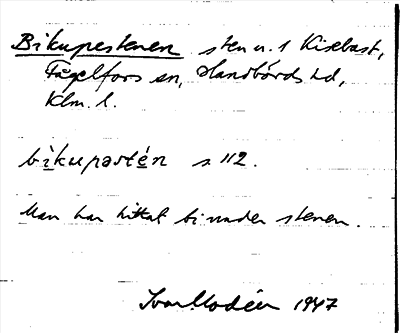 Bikupestenen sten n. 1 Kisebast,
Fågelfors sn, Handbörds hd,
Klm. l.
bikupastén s 112.
Man har hittat bi under stenen.
Ivar Modéer 1947